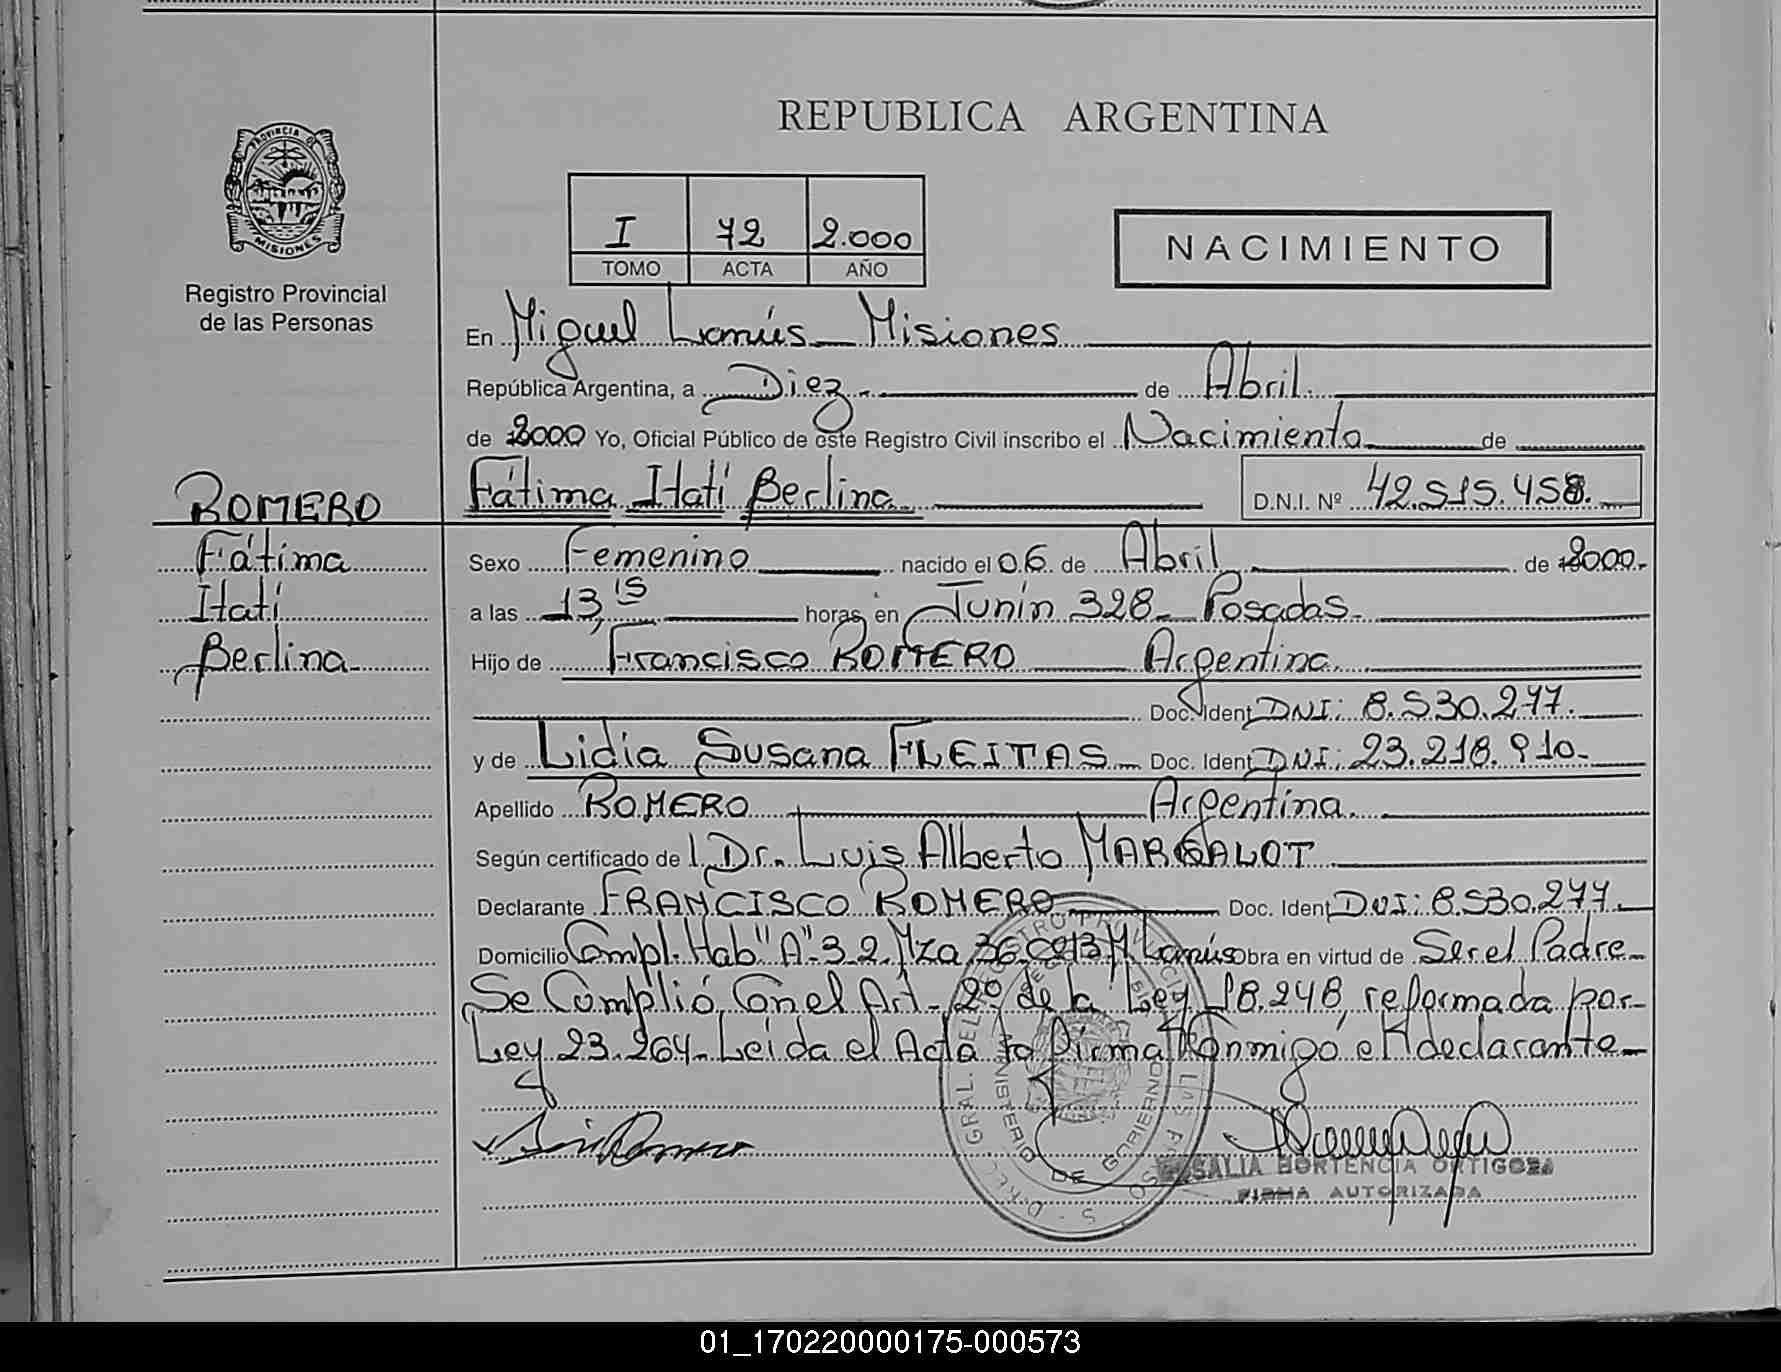 REPUBLICA ARGENTINA
PROVINCIA DE
MISIONES
Registro Provincial
de las Personas
I 72 2.000
TOMO ACTA AÑO
NACIMIENTO
En Miguel Lanús - Misiones
República Argentina, a Diez de Abril
de 2000 Yo, Oficial Público de este Registro Civil inscribo el Nacimiento de
ROMERO Fátima Itatí Berlina D.N.I. Nº 42.515.458.
Fátima Sexo Femenino nacido el 06 de Abril de 2000.
Itatí a las 13,15 horas, en Junín 328 - Posadas.
Berlina Hijo de Francisco ROMERO Argentina.
Doc. Ident DNI: 8.530.277.
y de Lidia Susana FLEITAS - Doc. Ident DNI: 23.218.910.
Apellido ROMERO Argentina.
Según certificado de l Dr. Luis Alberto MARGALOT
Declarante FRANCISCO ROMERO Doc. Ident DNI: 8.530.277.
Domicilio Compl. Hab "A" 32 Mza 36 M Lanús obra en virtud de Ser el Padre
Se Cumplió Con el Art. 2º de la Ley 18.248, reformada por
Ley 23.264. Leída el Acta la firma Conmigo el declarante
ROSALIA HORTENCIA ORTIGOZA
FIRMA AUTORIZADA
MINISTERIO DE GOBIERNO
01_170220000175-000573